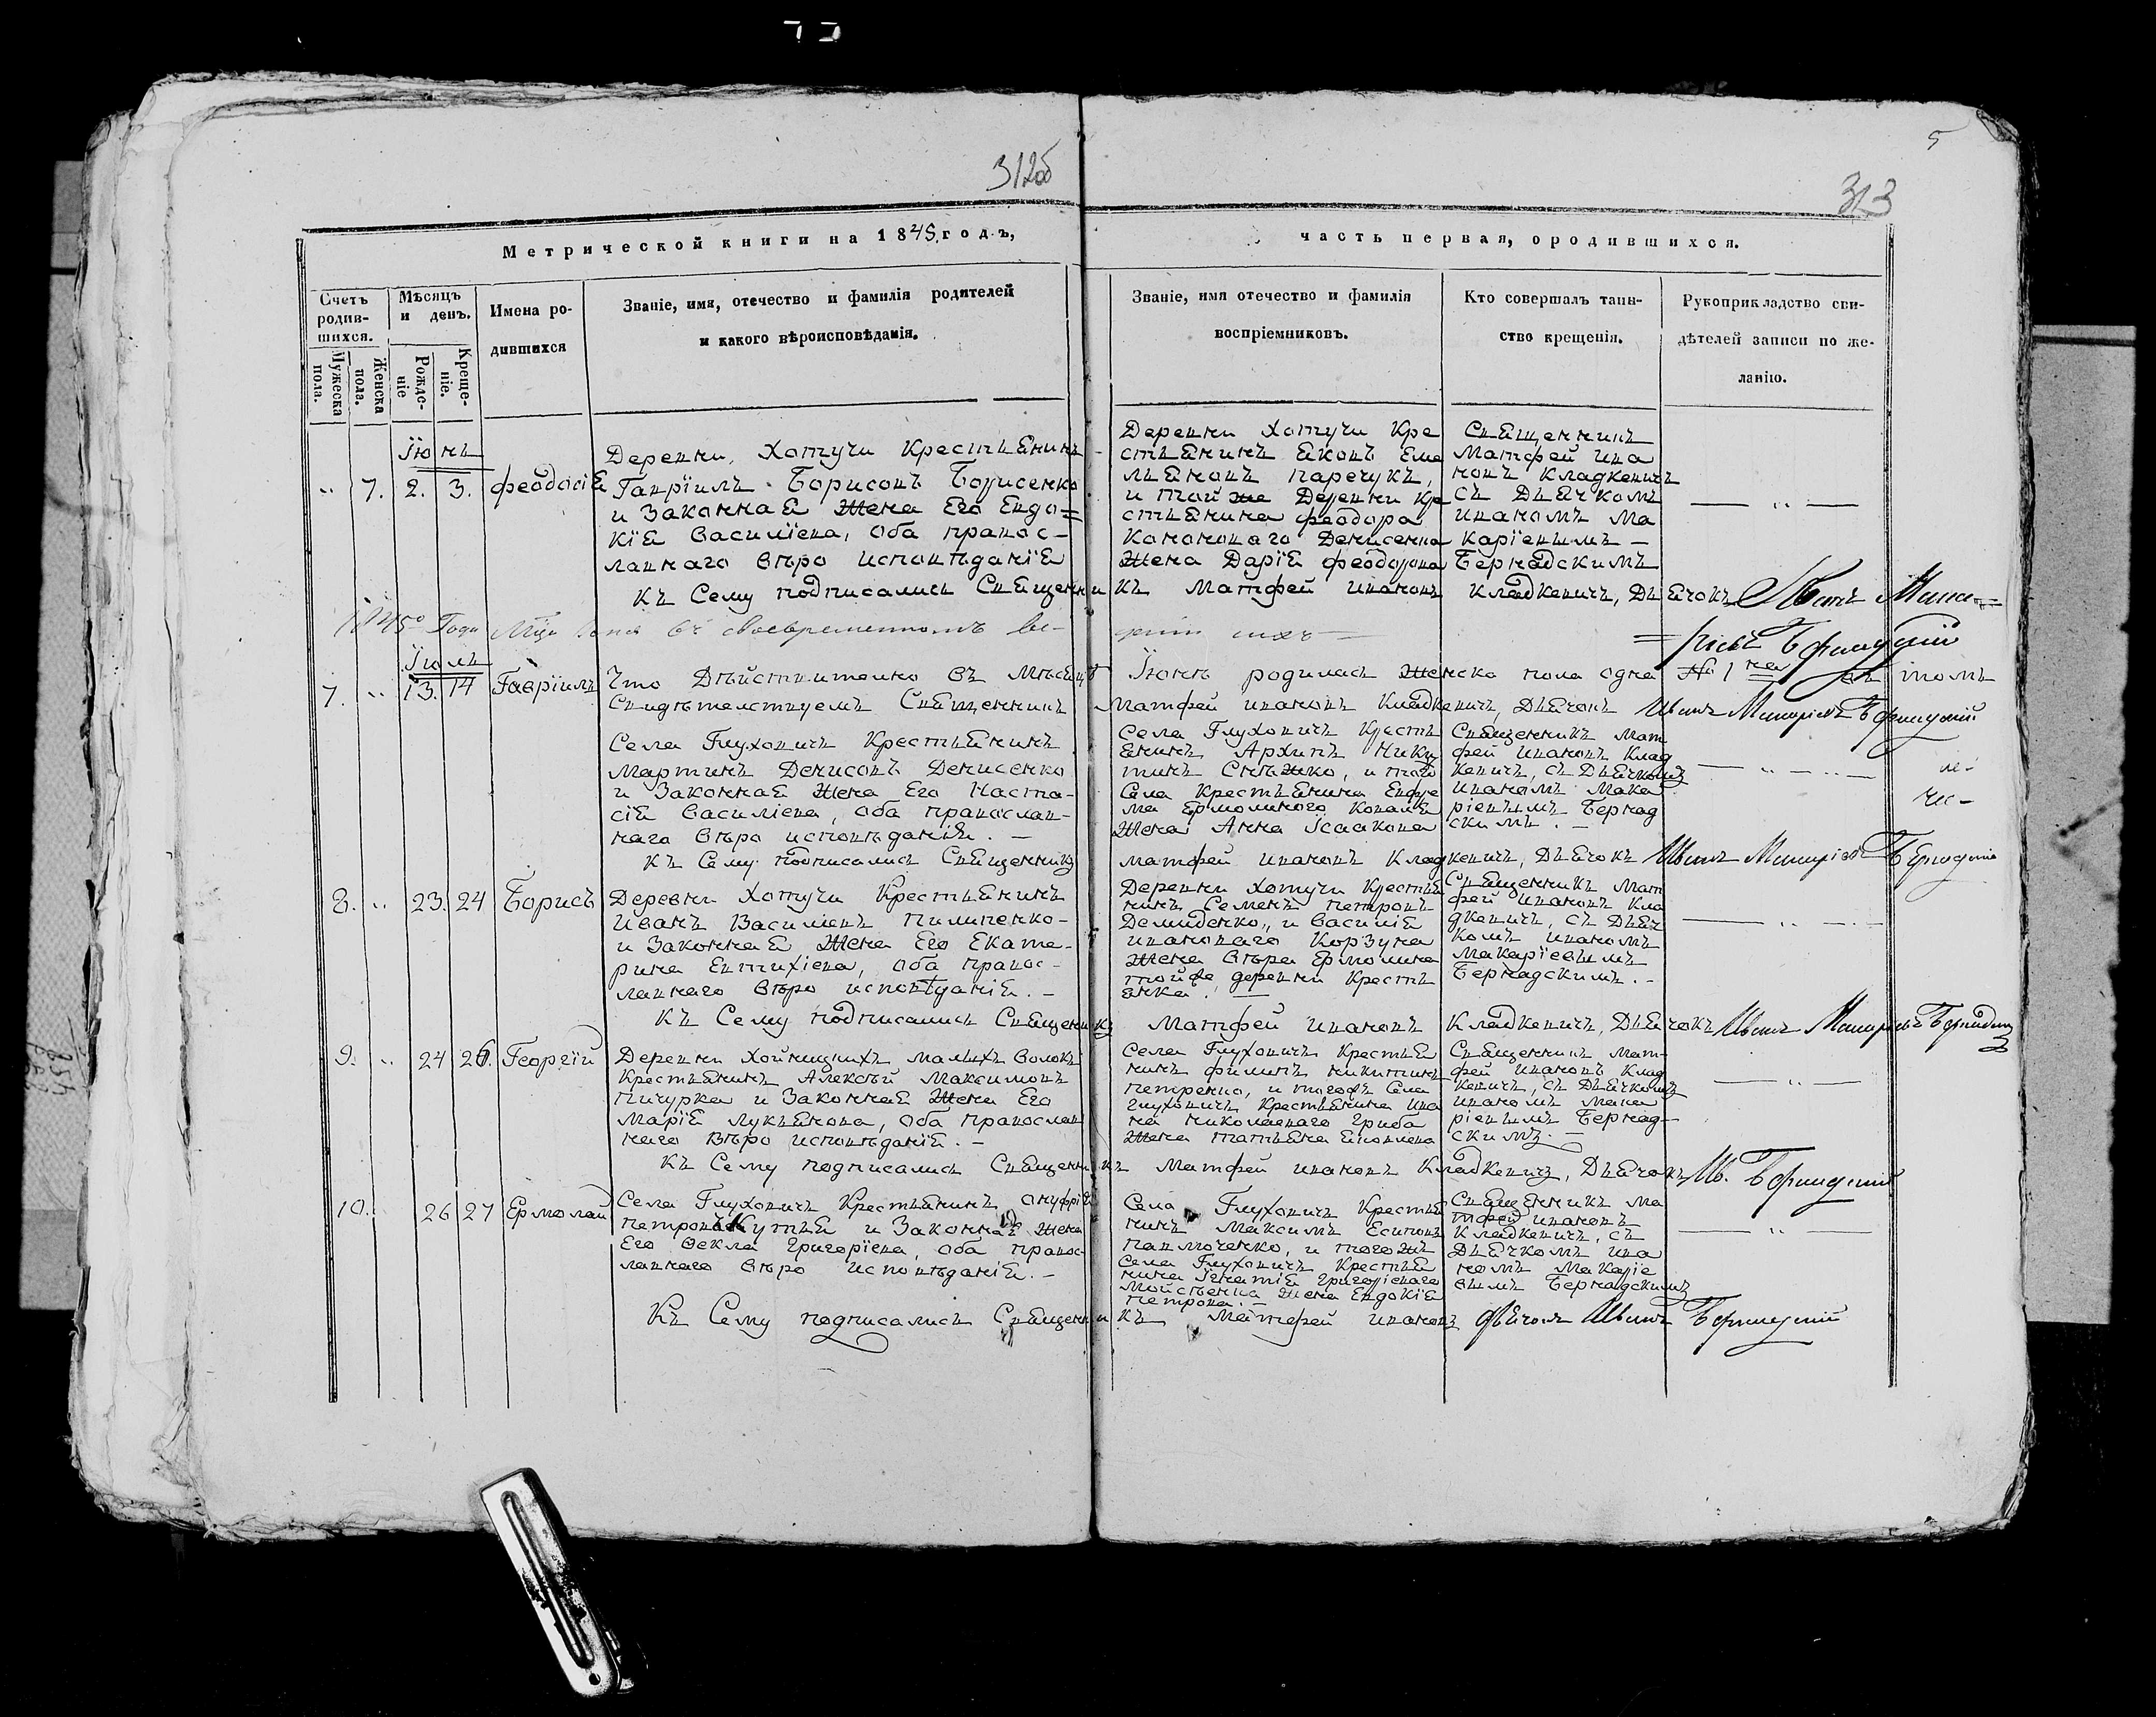 312об
5
313
Метрической книги на 1845 годъ,
часть первая, ородившихся.
Счетъ родив-шихся.
Мужеска пола.
Женска пола.
Мѣсяцъ и день.
Рожде-ніе
Креще-ніе.
Имена ро-
дившихся
Званіе, имя, отечество и фамилія родителей
и какого вѣроисповѣданія.
Званіе, имя отечество и фамилія
воспріемниковъ.
Кто совершалъ таин-
ство крещенія.
Рукоприкладство сви-
дѣтелей записи по же-
ланію.
Їюнь
" 7. 2. 3. Феодосія
Деревни Хотучи Крестьянинъ
Гавріилъ Борисовъ Борисенко
и Законная Жена Его Евдо=
кія Василіева, Оба правос-
лавнаго вѣро исповѣданія
Деревни Хотучи Кре
стьянинъ Яковъ Еме
льяновъ Паречукъ,
и той же Деревни Кре
стьянина Феодора
Кононоваго Денисенка
Жена Дарія Феодорова
Священникъ
Матфей Ива
новъ Кладкевичъ
съ Дьячкомъ
Иваномъ Ма
каріевымъ —
Бернадскимъ
— " —
Къ Сему подписались Священникъ Матфей Ивановъ Кладкевичъ, Дьячокъ Иванъ Мака=
=ріевъ Бернадскій
1845го Года
Їюль
Что Дѣйствительно въ Мѣсяцѣ Їюнѣ родилась Женска пола одна № 1 на въ томъ
Свидѣтельствуемъ Священникъ Матфей Ивановъ Кладкевичъ, Дьячокъ Иванъ Макаріевъ Бернадскій
7. " 13. 14 Гавріилъ
Села Глуховичъ Крестьянинъ
Мартинъ Денисовъ Денисенко
и Законная Жена Его Наста-
сія Василіева, Оба православ-
наго вѣро исповѣданія. —
Села Глуховичъ Кресть
янинъ Архипъ Мики
тинъ Снѣжко, и того
Села Крестьянина Евфре
ма Ермолиного Коваля
Жена Анна Їсаакова
Священникъ Мат
фей Ивановъ Клад
кевичъ, съ Дьячкомъ
Иваномъ Мака
ріевымъ Бернад
скимъ. —
— " — " —
Къ Сему подписались Священникъ Матфей Ивановъ Кладкевичъ, Дьячокъ Иванъ Макаріевъ Бернадскій
8. " 23. 24 Борисъ
Деревни Хотучи Крестьянинъ
Иванъ Васильевъ Пилипенко-
и Законная Жена Его Екате-
рина Евтихіева, Оба правос-
лавнаго вѣро исповѣданія. —
Деревни Хотучи Крестья
нинъ Семенъ Петровъ
Демиденко, и Василія
Ивановаго Корзуна
Жена Вѣра Ермолина
тойже деревни Кресть
янка. —
Священникъ Мат
фей Ивановъ Кла
дкевичъ, съ Дьяч
комъ Иваномъ
Макаріевымъ
Бернадскимъ. —
— " —
Къ Сему подписались Священникъ Матфей Ивановъ Кладкевичъ, Дьячокъ Иванъ Макаріевъ Бернадскій
9. " 24 26. Георгій
Деревни Хойницкихъ малыхъ Волокъ
Крестьянинъ Алексѣй Максимовъ
Пичурка и Законная Жена Его
Марія Лукьянова, Оба православ
наго Вѣро исповѣданія. —
Села Глуховичъ Крестья
нинъ Филипъ Никитинъ
Петренко, и тогоже Села
Глуховичъ Крестьянина Ива
на Николаеваго Гриба
Жена Татьяна Яковлева
Священникъ Мат-
фей Ивановъ Клад
кевичъ, съ Дьячкомъ
Иваномъ Мака
ріевымъ Бернад-
скимъ. —
— " —
Къ Сему подписались Священникъ Матфей Ивановъ Кладкевичъ, Дьячокъ Ив. Бернадскій
10. 26 27 Ермолай
Села Глуховичъ Крестьянинъ Онуфрій
Петровъ Кутня и Законная Жена
Его Ѳекла Григоріева, Оба правос-
лавнаго вѣро исповѣданія. —
Села Глуховичъ Крестья
нинъ Максимъ Есиповъ
Панмоченко, и того жъ
Села Глуховичъ Крестья
нина Їгнатія Григоріеваго
Мойстенка Жена Евдокія
Петрова. —
Священникъ Ма
тфей Ивановъ
Кладкевичъ, съ
Дьячкомъ Ива
номъ Макаріе
вымъ Бернадскимъ
— " —
Къ Сему подписались Священникъ Матфей Ивановъ Дьячокъ Иванъ Бернадскій